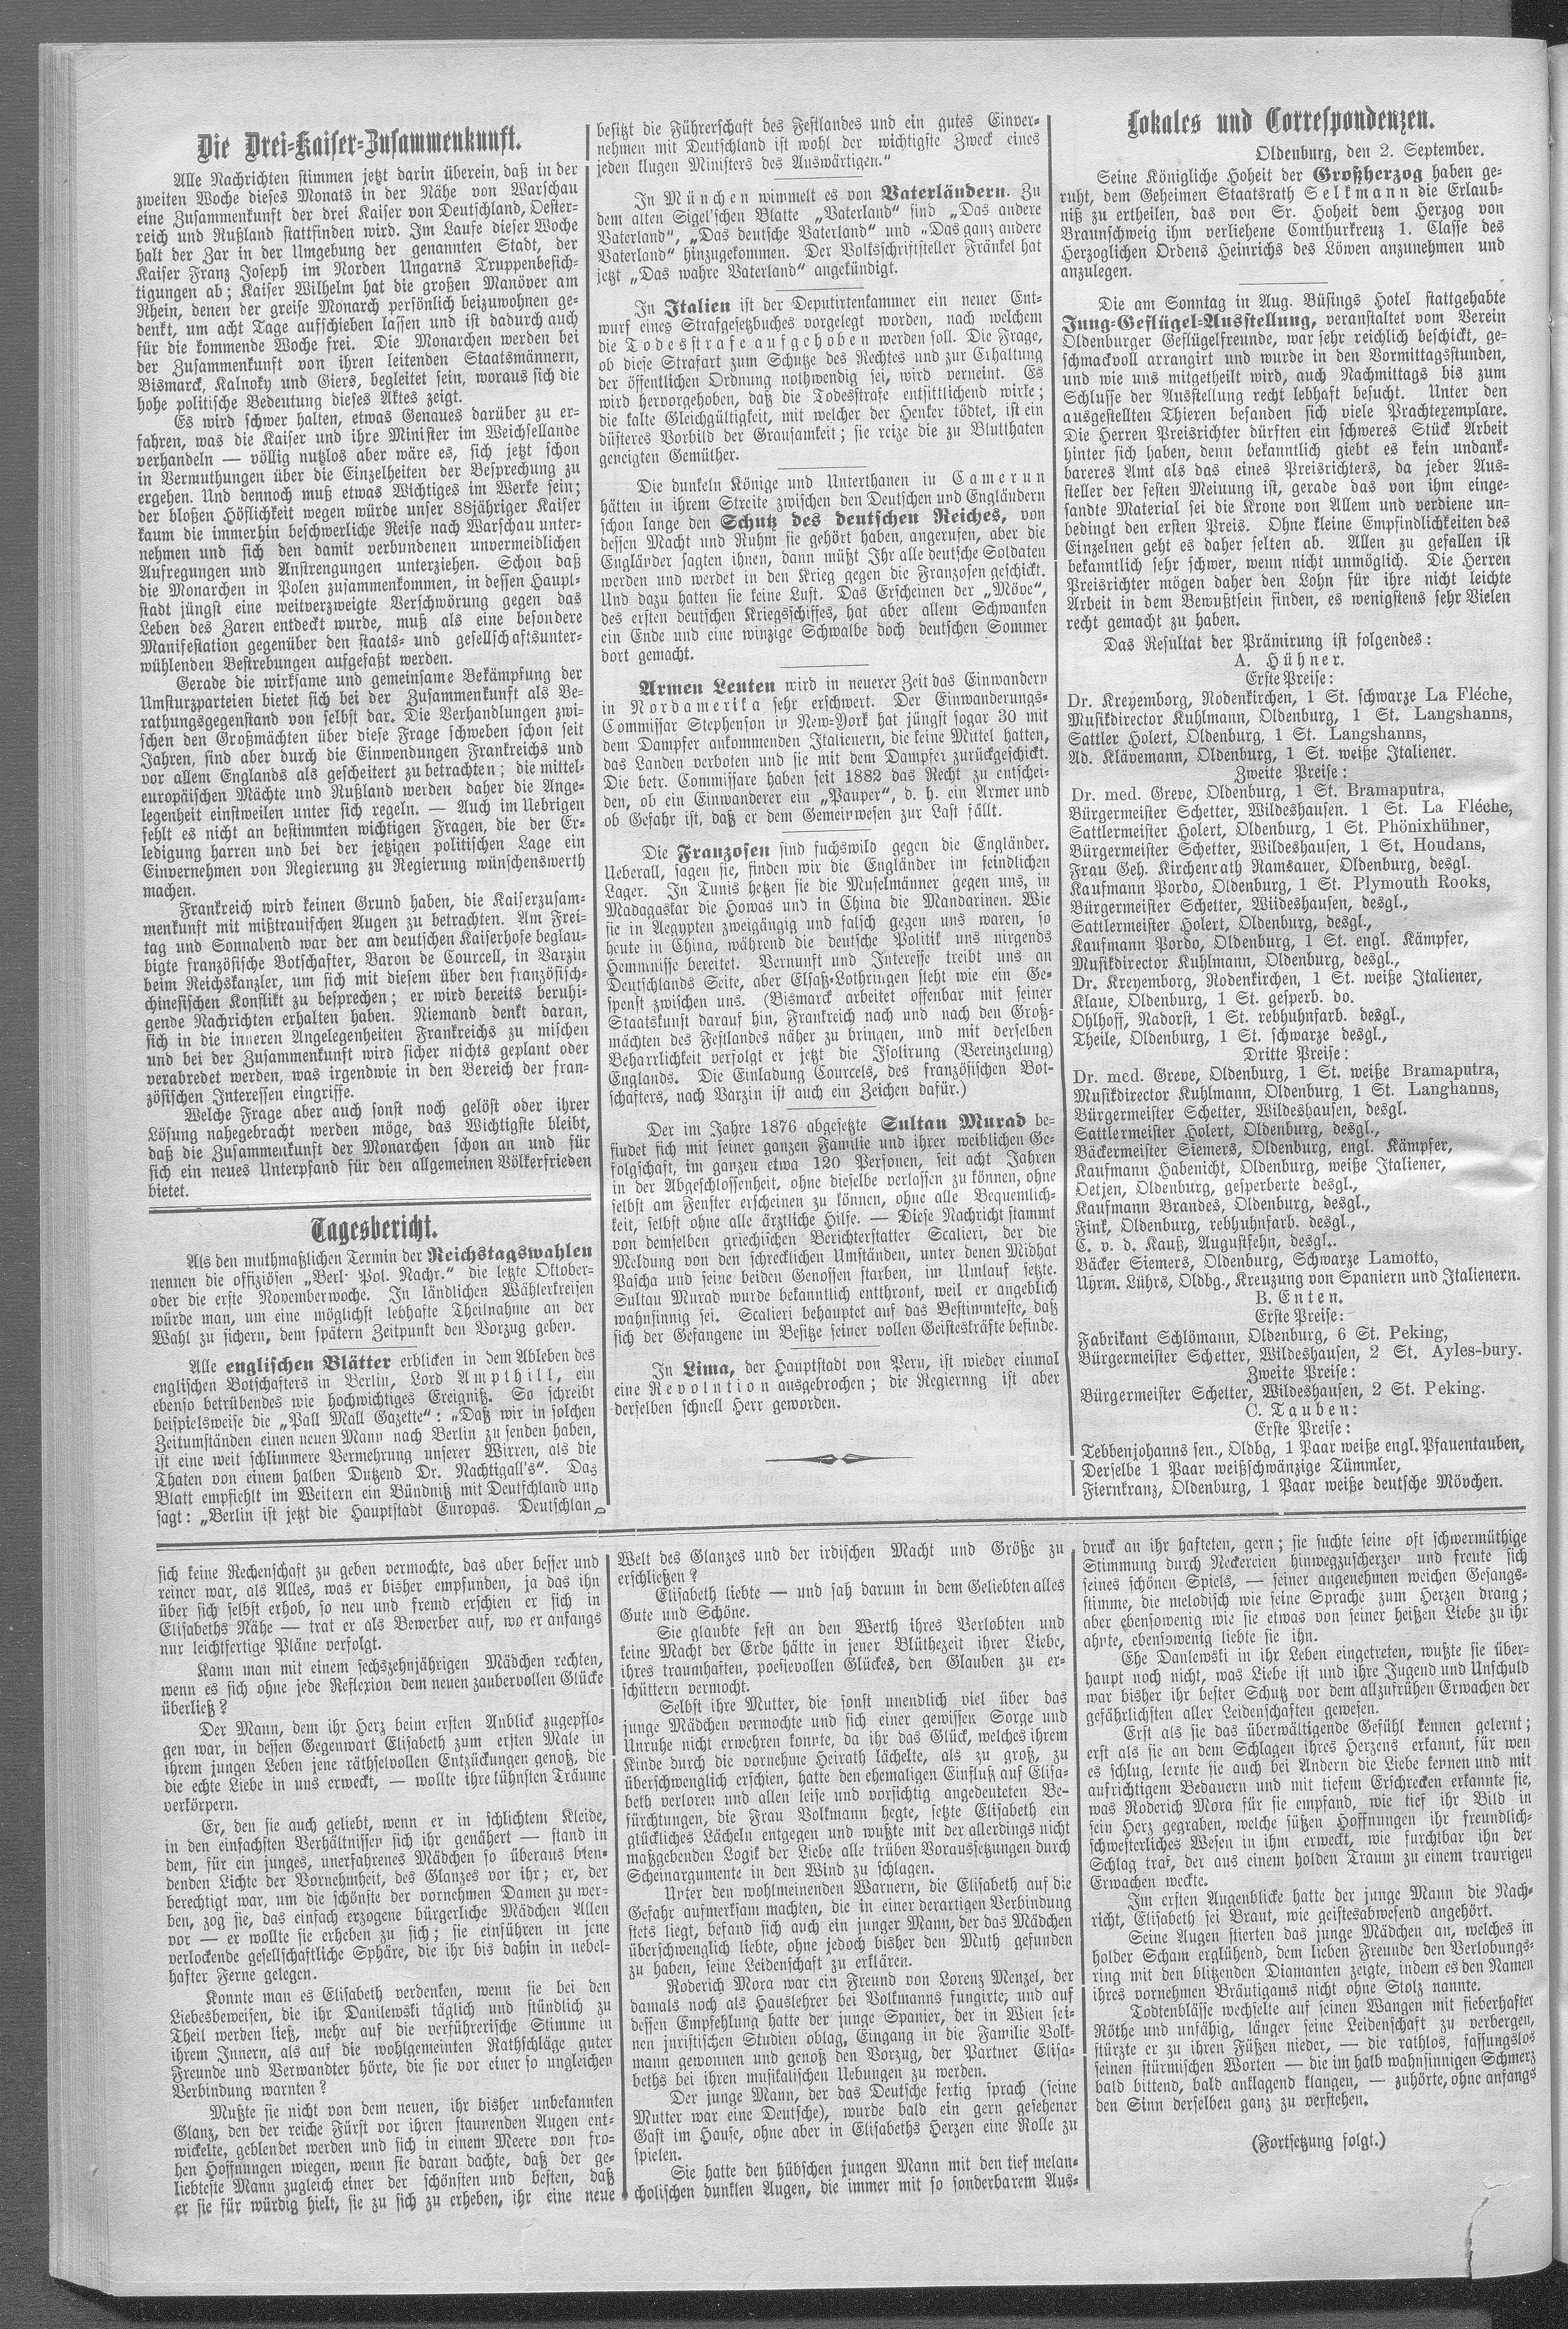 Die Drei-Kaiser-Zusammenkunft.
Alle Nachrichten stimmen jetzt darin überein, daß in der
zweiten Woche dieses Monats in der Nähe von Warschau
eine Zusammenkunft der drei Kaiser von Deutschland, Oester-
reich und Rußland stattfinden wird. Im Laufe dieser Woche
halt der Zar in der Umgebung der genannten Stadt, der
Kaiser Franz Joseph im Norden Ungarns Truppenbesich-
tigungen ab; Kaiser Wilhelm hat die großen Manöver am
Rhein, denen der greise Monarch persönlich beizuwohnen ge-
denkt, um acht Tage aufschieben lassen und ist dadurch auch
für die kommende Woche frei. Die Monarchen werden bei
der Zusammenkunft von ihren leitenden Staatsmännern,
Bismarck, Kalnoky und Giers, begleitet sein, woraus sich die
hohe politische Bedeutung dieses Aktes zeigt.
Es wird schwer halten, etwas Genaues darüber zu er-
fahren, was die Kaiser und ihre Minister im Weichsellande
verhandeln — völlig nutzlos aber wäre es, sich jetzt schon
in Vermuthungen über die Einzelheiten der Besprechung zu
ergehen. Und dennoch muß etwas Wichtiges im Werke sein;
der bloßen Höflichkeit wegen würde unser 88jähriger Kaiser
kaum die immerhin beschwerliche Reise nach Warschau unter-
nehmen und sich den damit verbundenen unvermeidlichen
Aufregungen und Anstrengungen unterziehen. Schon daß
die Monarchen in Polen zusammenkommen, in dessen Haupt-
stadt jüngst eine weitverzweigte Verschwörung gegen das
Leben des Zaren entdeckt wurde, muß als eine besondere
Manifestation gegenüber den staats- und gesellschaftsunter-
wühlenden Bestrebungen aufgefaßt werden.
Gerade die wirksame und gemeinsame Bekämpfung der
Umsturzparteien bietet sich bei der Zusammenkunft als Be-
rathungsgegenstand von selbst dar. Die Verhandlungen zwi-
schen den Großmächten über diese Frage schweben schon seit
Jahren, sind aber durch die Einwendungen Frankreichs und
vor allem Englands als gescheitert zu betrachten; die mittel-
europäischen Mächte und Rußland werden daher die Ange-
legenheit einstweilen unter sich regeln. — Auch im Uebrigen
fehlt es nicht an bestimmten wichtigen Fragen, die der Er-
ledigung harren und bei der jetzigen politischen Lage ein
Einvernehmen von Regierung zu Regierung wünschenswerth
machen.
Frankreich wird keinen Grund haben, die Kaiserzusam-
menkunft mit mißtrauischen Augen zu betrachten. Am Frei-
tag und Sonnabend war der am deutschen Kaiserhofe beglau-
bigte französische Botschafter, Baron de Courcell, in Varzin
beim Reichskanzler, um sich mit diesem über den französisch-
chinesischen Konflikt zu besprechen; er wird bereits beruhi-
gende Nachrichten erhalten haben. Niemand denkt daran,
sich in die inneren Angelegenheiten Frankreichs zu mischen
und bei der Zusammenkunft wird sicher nichts geplant oder
verabredet werden, was irgendwie in den Bereich der fran-
zösischen Interessen eingriffe.
Welche Frage aber auch sonst noch gelöst oder ihrer
Lösung nahegebracht werden möge, das Wichtigste bleibt,
daß die Zusammenkunft der Monarchen schon an und für
sich ein neues Unterpfand für den allgemeinen Völkerfrieden
bietet.
Tagesbericht.
Als den muthmaßlichen Termin der Reichstagswahlen
nennen die offiziösen „Berl. Pol. Nachr.“ die letzte Oktober-
oder die erste Novemberwoche. In ländlichen Wählerkreisen
würde man, um eine möglichst lebhafte Theilnahme an der
Wahl zu sichern, dem spätern Zeitpunkt den Vorzug geben.
Alle englischen Blätter erblicken in dem Ableben des
englischen Botschafters in Berlin, Lord Ampthill, ein
ebenso betrübendes wie hochwichtiges Ereigniß. So schreibt
beispielsweise die „Pall Mall Gazette“: „Daß wir in solchen
Zeitumständen einen neuen Mann nach Berlin zu senden haben,
ist eine weit schlimmere Vermehrung unserer Wirren, als die
Thaten von einem halben Dutzend Dr. Nachtigall's“. Das
Blatt empfiehlt im Weitern ein Bündniß mit Deutschland und
sagt: „Berlin ist jetzt die Hauptstadt Europas. Deutschland
besitzt die Führerschaft des Festlandes und ein gutes Einver-
nehmen mit Deutschland ist wohl der wichtigste Zweck eines
jeden klugen Ministers des Auswärtigen.“
In München wimmelt es von Vaterländern. Zu
dem alten Sigel'schen Blatte „Vaterland“ sind „Das andere
Vaterland“, „Das deutsche Vaterland“ und „Das ganz andere
Vaterland“ hinzugekommen. Der Volksschriftsteller Fränkel hat
jetzt „Das wahre Vaterland“ angekündigt.
In Italien ist der Deputirtenkammer ein neuer Ent-
wurf eines Strafgesetzbuches vorgelegt worden, nach welchem
die Todesstrafe aufgehoben werden soll. Die Frage,
ob diese Strafart zum Schutze des Rechtes und zur Erhaltung
der öffentlichen Ordnung nothwendig sei, wird verneint. Es
wird hervorgehoben, daß die Todesstrafe entsittlichend wirke;
die kalte Gleichgültigkeit, mit welcher der Henker tödtet, ist ein
düsteres Vorbild der Grausamkeit; sie reize die zu Blutthaten
geneigten Gemüther.
Die dunkeln Könige und Unterthanen in Camerun
hätten in ihrem Streite zwischen den Deutschen und Engländern
schon lange den Schutz des deutschen Reiches, von
dessen Macht und Ruhm sie gehört haben, angerufen, aber die
Engländer sagten ihnen, dann müßt Ihr alle deutsche Soldaten
werden und werdet in den Krieg gegen die Franzosen geschickt.
Und dazu hatten sie keine Lust. Das Erscheinen der „Möve“,
des ersten deutschen Kriegsschiffes, hat aber allem Schwanken
ein Ende und eine winzige Schwalbe doch deutschen Sommer
dort gemacht.
Armen Leuten wird in neuerer Zeit das Einwandern
in Nordamerika sehr erschwert. Der Einwanderungs-
Commissar Stephenson in New-York hat jüngst sogar 30 mit
dem Dampfer ankommenden Italienern, die keine Mittel hatten,
das Landen verboten und sie mit dem Dampfer zurückgeschickt.
Die betr. Commissare haben seit 1882 das Recht zu entschei-
den, ob ein Einwanderer ein „Pauper“, d. h. ein Armer und
ob Gefahr ist, daß er dem Gemeinwesen zur Last fällt.
Die Franzosen sind fuchswild gegen die Engländer.
Ueberall, sagen sie, finden wir die Engländer im feindlichen
Lager. In Tunis hetzen sie die Muselmänner gegen uns, in
Madagaskar die Howas und in China die Mandarinen. Wie
sie in Aegypten zweigängig und falsch gegen uns waren, so
heute in China, während die deutsche Politik uns nirgends
Hemmnisse bereitet. Vernunft und Interesse treibt uns an
Deutschlands Seite, aber Elsaß-Lothringen steht wie ein Ge-
spenst zwischen uns. (Bismarck arbeitet offenbar mit seiner
Staatskunst darauf hin, Frankreich nach und nach den Groß-
mächten des Festlandes näher zu bringen, und mit derselben
Beharrlichkeit verfolgt er jetzt die Isolirung (Vereinzelung)
Englands. Die Einladung Courcels, des französischen Bot-
schafters, nach Varzin ist auch ein Zeichen dafür.)
Der im Jahre 1876 abgesetzte Sultan Murad be-
findet sich mit seiner ganzen Familie und ihrer weiblichen Ge-
folgschaft, im ganzen etwa 120 Personen, seit acht Jahren
in der Abgeschlossenheit, ohne dieselbe verlassen zu können, ohne
selbst am Fenster erscheinen zu können, ohne alle Bequemlich-
keit, selbst ohne alle ärztliche Hilfe. — Diese Nachricht stammt
von demselben griechischen Berichterstatter Scalieri, der die
Meldung von den schrecklichen Umständen, unter denen Midhat
Pascha und seine beiden Genossen starben, im Umlauf setzte.
Sultan Murad wurde bekanntlich entthront, weil er angeblich
wahnsinnig sei. Scalieri behauptet auf das Bestimmteste, daß
sich der Gefangene im Besitze seiner vollen Geisteskräfte befinde.
In Lima, der Hauptstadt von Peru, ist wieder einmal
eine Revolution ausgebrochen; die Regierung ist aber
derselben schnell Herr geworden.
Lokales und Correspondenzen.
Oldenburg, den 2. September.
Seine Königliche Hoheit der Großherzog haben ge-
ruht, dem Geheimen Staatsrath Selkmann die Erlaub-
niß zu ertheilen, das von Sr. Hoheit dem Herzog von
Braunschweig ihm verliehene Comthurkreuz 1. Classe des
Herzoglichen Ordens Heinrichs des Löwen anzunehmen und
anzulegen.
Die am Sonntag in Aug. Büsings Hotel stattgehabte
Jung-Geflügel-Ausstellung, veranstaltet vom Verein
Oldenburger Geflügelfreunde, war sehr reichlich beschickt, ge-
schmackvoll arrangirt und wurde in den Vormittagsstunden,
und wie uns mitgetheilt wird, auch Nachmittags bis zum
Schlusse der Ausstellung recht lebhaft besucht. Unter den
ausgestellten Thieren befanden sich viele Prachtexemplare.
Die Herren Preisrichter dürften ein schweres Stück Arbeit
hinter sich haben, denn bekanntlich giebt es kein undank-
bareres Amt als das eines Preisrichters, da jeder Aus-
steller der festen Meinung ist, gerade das von ihm einge-
sandte Material sei die Krone von Allem und verdiene un-
bedingt den ersten Preis. Ohne kleine Empfindlichkeiten des
Einzelnen geht es daher selten ab. Allen zu gefallen ist
bekanntlich sehr schwer, wenn nicht unmöglich. Die Herren
Preisrichter mögen daher den Lohn für ihre nicht leichte
Arbeit in dem Bewußtsein finden, es wenigstens sehr Vielen
recht gemacht zu haben.
Das Resultat der Prämirung ist folgendes:
A. Hühner.
Erste Preise:
Dr. Kreyemborg, Rodenkirchen, 1 St. schwarze La Fléche,
Musikdirector Kuhlmann, Oldenburg, 1 St. Langshanns,
Sattler Holert, Oldenburg, 1 St. Langshanns,
Ad. Klävemann, Oldenburg, 1 St. weiße Italiener.
Zweite Preise:
Dr. med. Greve, Oldenburg, 1 St. Bramaputra,
Bürgermeister Schetter, Wildeshausen. 1 St. La Fléche,
Sattlermeister Holert, Oldenburg, 1 St. Phönixhühner,
Bürgermeister Schetter, Wildeshausen, 1 St. Houdans,
Frau Geh. Kirchenrath Ramsauer, Oldenburg, desgl.
Kaufmann Pordo, Oldenburg, 1 St. Plymouth Rooks,
Bürgermeister Schetter, Wildeshausen, desgl.,
Sattlermeister Holert, Oldenburg, desgl.,
Kaufmann Pordo, Oldenburg, 1 St. engl. Kämpfer,
Musikdirector Kuhlmann, Oldenburg, desgl.,
Dr. Kreyemborg, Rodenkirchen, 1 St. weiße Italiener,
Klaue, Oldenburg, 1 St. gesperb. do.
Ohlhoff, Nadorst, 1 St. rebhuhnfarb. desgl.,
Theile, Oldenburg, 1 St. schwarze desgl.,
Dritte Preise:
Dr. med. Greve, Oldenburg, 1 St. weiße Bramaputra,
Musikdirector Kuhlmann, Oldenburg, 1 St. Langhanns,
Bürgermeister Schetter, Wildeshausen, desgl.
Sattlermeister Holert, Oldenburg, desgl.,
Bäckermeister Siemers, Oldenburg, engl. Kämpfer,
Kaufmann Habenicht, Oldenburg, weiße Italiener,
Oetjen, Oldenburg, gesperberte desgl.,
Kaufmann Brandes, Oldenburg, desgl.,
Fink, Oldenburg, rebhuhnfarb. desgl.,
C. v. d. Kauß, Augustfehn, desgl..
Bäcker Siemers, Oldenburg, Schwarze Lamotto,
Uhrm. Lührs, Oldbg., Kreuzung von Spaniern und Italienern.
B. Enten.
Erste Preise:
Fabrikant Schlömann, Oldenburg, 6 St. Peking,
Bürgermeister Schetter, Wildeshausen, 2 St. Ayles-bury.
Zweite Preise:
Bürgermeister Schetter, Wildeshausen, 2 St. Peking.
C. Tauben:
Erste Preise:
Tebbenjohanns sen., Oldbg, 1 Paar weiße engl. Pfauentauben,
Derselbe 1 Paar weißschwänzige Tümmler,
Fiernkranz, Oldenburg, 1 Paar weiße deutsche Mövchen.
sich keine Rechenschaft zu geben vermochte, das aber besser und
reiner war, als Alles, was er bisher empfunden, ja das ihn
über sich selbst erhob, so neu und fremd erschien er sich in
Elisabeths Nähe — trat er als Bewerber auf, wo er anfangs
nur leichtfertige Pläne verfolgt.
Kann man mit einem sechszehnjährigen Mädchen rechten,
wenn es sich ohne jede Reflexion dem neuen zaubervollen Glücke
überließ?
Der Mann, dem ihr Herz beim ersten Anblick zugeflo-
gen war, in dessen Gegenwart Elisabeth zum ersten Male in
ihrem jungen Leben jene räthselvollen Entzückungen genoß, die
die echte Liebe in uns erweckt, — wollte ihre kühnsten Träume
verkörpern.
Er, den sie auch geliebt, wenn er in schlichtem Kleide,
in den einfachsten Verhältnissen sich ihr genähert — stand in
dem, für ein junges, unerfahrenes Mädchen so überaus blen-
denden Lichte der Vornehmheit, des Glanzes vor ihr; er, der
berechtigt war, um die schönste der vornehmen Damen zu wer-
ben, zog sie, das einfach erzogene bürgerliche Mädchen Allen
vor — er wollte sie erheben zu sich; sie einführen in jene
verlockende gesellschaftliche Sphäre, die ihr bis dahin in nebel-
hafter Ferne gelegen.
Konnte man es Elisabeth verdenken, wenn sie bei den
Liebesbeweisen, die ihr Danilewski täglich und stündlich zu
Theil werden ließ, mehr auf die verführerische Stimme in
ihrem Innern, als auf die wohlgemeinten Rathschläge guter
Freunde und Verwandter hörte, die sie vor einer so ungleichen
Verbindung warnten?
Mußte sie nicht von dem neuen, ihr bisher unbekannten
Glanz, den der reiche Fürst vor ihren staunenden Augen ent-
wickelte, geblendet werden und sich in einem Meere von fro-
hen Hoffnungen wiegen, wenn sie daran dachte, daß der ge-
liebteste Mann zugleich einer der schönsten und besten, daß
er sie für würdig hielt, sie zu sich zu erheben, ihr eine neue
Welt des Glanzes und der irdischen Macht und Größe zu
erschließen?
Elisabeth liebte — und sah darum in dem Geliebten alles
Gute und Schöne.
Sie glaubte fest an den Werth ihres Verlobten und
keine Macht der Erde hätte in jener Blüthezeit ihrer Liebe,
ihres traumhaften, poesievollen Glückes, den Glauben zu er-
schüttern vermocht.
Selbst ihre Mutter, die sonst unendlich viel über das
junge Mädchen vermochte und sich einer gewissen Sorge und
Unruhe nicht erwehren konnte, da ihr das Glück, welches ihrem
Kinde durch die vornehme Heirath lächelte, als zu groß, zu
überschwenglich erschien, hatte den ehemaligen Einfluß auf Elisa-
beth verloren und allen leise und vorsichtig angedeuteten Be-
fürchtungen, die Frau Volkmann hegte, setzte Elisabeth ein
glückliches Lächeln entgegen und wußte mit der allerdings nicht
maßgebenden Logik der Liebe alle trüben Voraussetzungen durch
Scheinargumente in den Wind zu schlagen.
Unter den wohlmeinenden Warnern, die Elisabeth auf die
Gefahr aufmerksam machten, die in einer derartigen Verbindung
stets liegt, befand sich auch ein junger Mann, der das Mädchen
überschwenglich liebte, ohne jedoch bisher den Muth gefunden
zu haben, seine Leidenschaft zu erklären.
Roderich Mora war ein Freund von Lorenz Menzel, der
damals noch als Hauslehrer bei Volkmanns fungirte, und auf
dessen Empfehlung hatte der junge Spanier, der in Wien sei-
nen juristischen Studien oblag, Eingang in die Familie Volk-
mann gewonnen und genoß den Vorzug, der Partner Elisa-
beths bei ihren musikalischen Uebungen zu werden.
Der junge Mann, der das Deutsche fertig sprach (seine
Mutter war eine Deutsche), wurde bald ein gern gesehener
Gast im Hause, ohne aber in Elisabeths Herzen eine Rolle zu
spielen.
Sie hatte den hübschen jungen Mann mit den tief melan-
cholischen dunklen Augen, die immer mit so sonderbarem Aus-
druck an ihr hafteten, gern; sie suchte seine oft schwermüthige
Stimmung durch Neckereien hinwegzuscherzen und freute sich
seines schönen Spiels, — seiner angenehmen weichen Gesangs-
stimme, die melodisch wie seine Sprache zum Herzen drang;
aber ebensowenig wie sie etwas von seiner heißen Liebe zu ihr
ahnte, ebensowenig liebte sie ihn.
Ehe Danlewski in ihr Leben eingetreten, wußte sie über-
haupt noch nicht, was Liebe ist und ihre Jugend und Unschuld
war bisher ihr bester Schutz vor dem allzufrühen Erwachen der
gefährlichsten aller Leidenschaften gewesen.
Erst als sie das überwältigende Gefühl kennen gelernt;
erst als sie an dem Schlagen ihres Herzens erkannt, für wen
es schlug, lernte sie auch bei Andern die Liebe kennen und mit
aufrichtigem Bedauern und mit tiefem Erschrecken erkannte sie,
was Roderich Mora für sie empfand, wie tief ihr Bild in
sein Herz gegraben, welche süßen Hoffnungen ihr freundlich-
schwesterliches Wesen in ihm erweckt, wie furchtbar ihn der
Schlag traf, der aus einem holden Traum zu einem traurigen
Erwachen weckte.
Im ersten Augenblicke hatte der junge Mann die Nach-
richt, Elisabeth sei Braut, wie geistesabwesend angehört.
Seine Augen stierten das junge Mädchen an, welches in
holder Scham erglühend, dem lieben Freunde den Verlobungs-
ring mit den blitzenden Diamanten zeigte, indem es den Namen
ihres vornehmen Bräutigams nicht ohne Stolz nannte.
Todtenblässe wechselte auf seinen Wangen mit fieberhafter
Röthe und unfähig, länger seine Leidenschaft zu verbergen,
stürzte er zu ihren Füßen nieder, — die rathlos, fassungslos
seinen stürmischen Worten — die im halb wahnsinnigen Schmerz
bald bittend, bald anklagend klangen, — zuhörte, ohne anfangs
den Sinn derselben ganz zu verstehen.
(Fortsetzung folgt.)